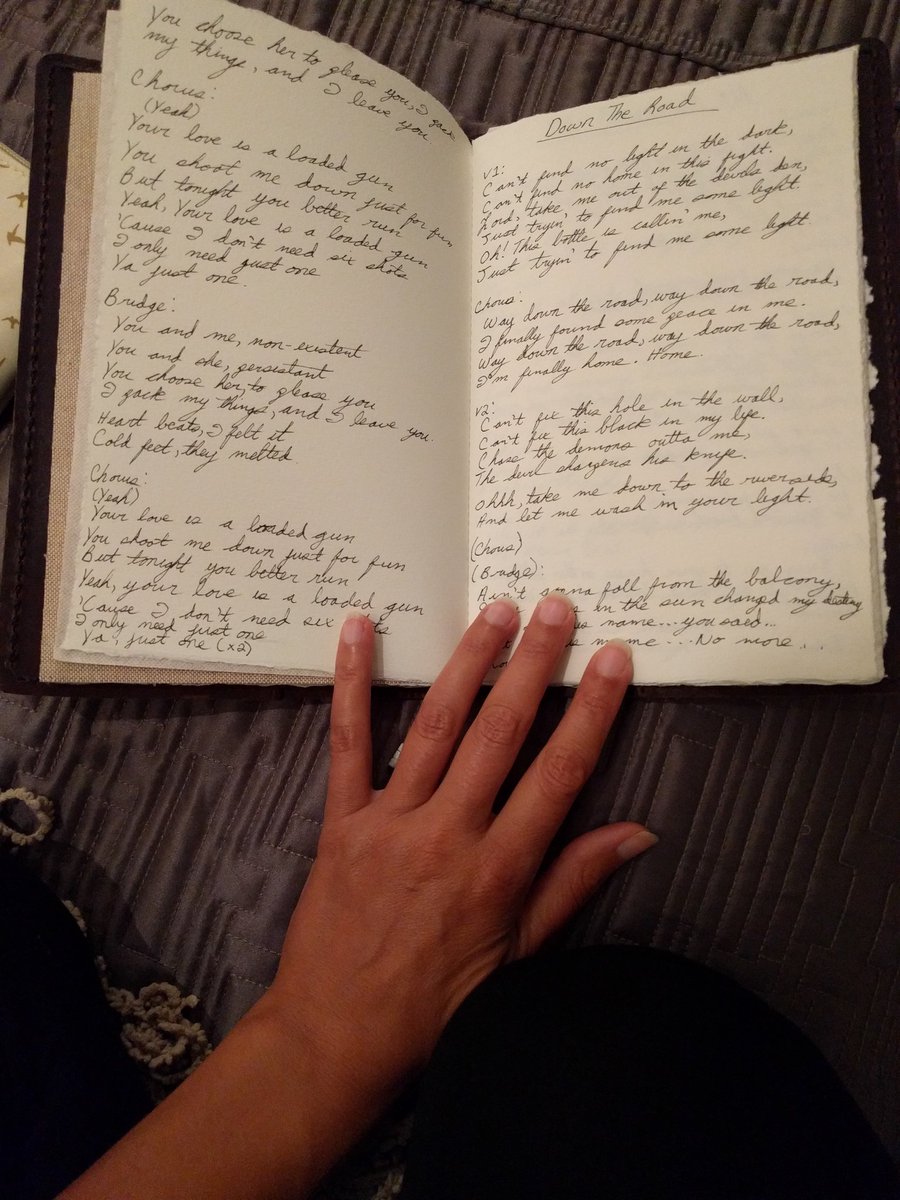 You choose her to please you, I pack
my things, and I leave you
Chorus:
(Yeah)
Your love is a loaded gun
You shoot me down just for fun
But tonight you better run
Yeah, Your love is a loaded gun
'Cause I don't need six shots
I only need just one
Ya just one.
Bridge:
You and me, non-existent
You and she, persistant
You choose her, to please you
I pack my things, and I leave you.
Heart beats, I felt it
Cold feet, they melted
Chorus:
(Yeah)
Your love is a loaded gun
You shoot me down just for fun
But tonight you better run
Yeah, your love is a loaded gun
'Cause I don't need six
I only need just one
Ya, just one (x2)
Down The Road
V1:
Can't find no light in the dark,
Can't find no home in this fight.
Lord, take me out of the devils den,
Just tryin' to find me some light.
Oh! This bottle is callin' me,
Just tryin' to find me some light
Chous:
Way down the road, way down the road,
I finally found some peace in me.
Way down the road, way down the road,
I'm finally home. Home.
V2:
Can't fix this hole in the wall,
Can't fix this black in my life.
Chase the demons outta me,
The devil sharpens his knife.
Ohhh, take me down to the riverside,
And let me wash in your light.
(Chous)
(Bridge):
Ain't gonna fall from the balcony,
in the sun changed my destiny
name...you said...
name...No more...